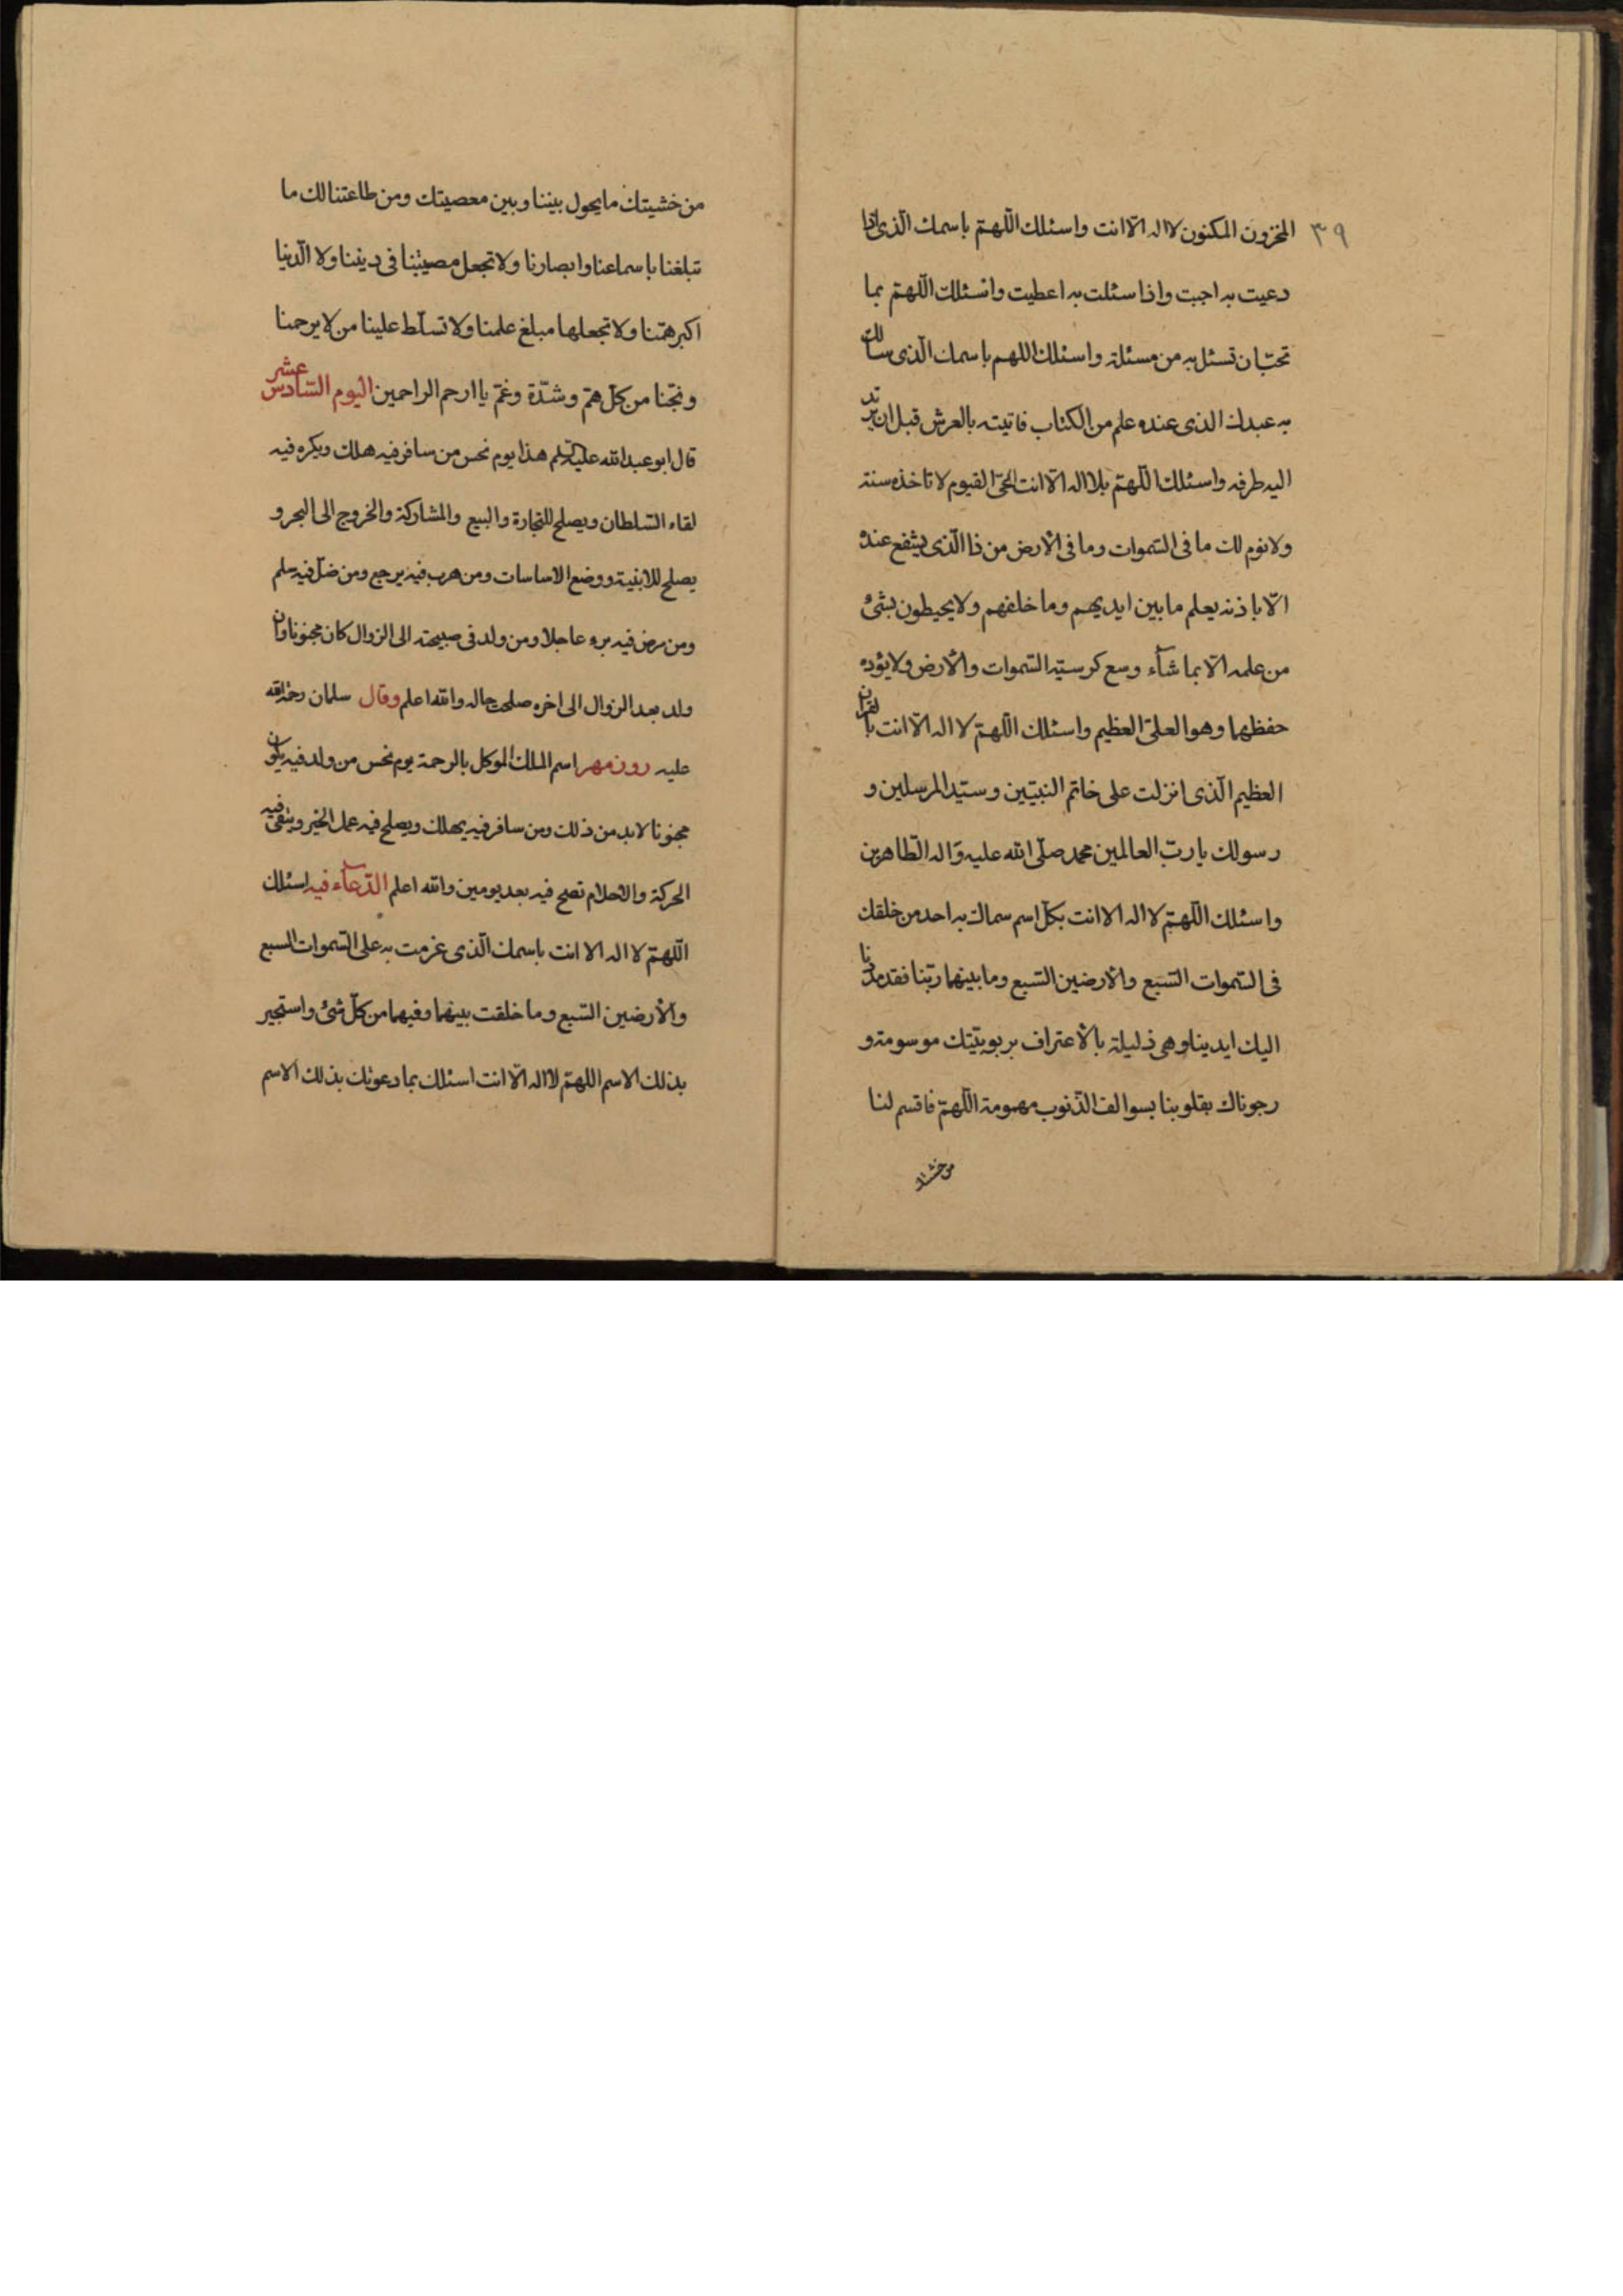 ٣٩
المخزون المكنون لا اله الّا انت واسئلك اللّهمّ باسمك الّذی اذا
دعیت به اجبت واذا سئلت به اعطیت واسئلك اللّهمّ بما
تحبّ ان تسئل به من مسئلة واسئلك اللهم باسمك الّذی سالك
به عبدك الذی عنده علم من الکتاب فاتیته بالعرش قبل ان یرتد
الیه طرفه واسئلك اللّهمّ بلا اله الّا انت الحیّ القیوم لا تاخذه سنة
ولا نوم لك ما فی السّموات وما فی الأرض من ذا الّذی یشفع عنده
الّا باذنه یعلم ما بین ایدیهم وما خلفهم ولا یحیطون بشئ
من علمه الّا بما شآء وسع کرسیّه السّموات والأرض ولا یؤده
حفظهما وهو العلیّ العظیم واسئلك اللّهمّ لا اله الّا انت بالقران
العظیم الّذی انزلت علی خاتم النبیّین وسیّد المرسلین و
رسولك یا ربّ العالمین محمد صلّی الله علیه وآله الطّاهرین
واسئلك اللّهمّ لا اله الا انت بکلّ اسم سماك به احد من خلقك
فی السّموات السّبع والأرضین السّبع وما بینهما ربّنا فقد مددنا
الیك ایدینا وهی ذلیلة بالأعتراف بربوبیّتك موسومة و
رجوناك بقلوبنا بسوالف الذّنوب مهمومة اللّهمّ فاقسم لنا
من خشیتك
من خشیتك ما یحول بیننا وبین معصیتك ومن طاعتنا لك ما
تبلغنا باسماعنا وابصارنا ولا تجعل مصیبتنا فی دیننا ولا الدّنیا
اکبر همّنا ولا تجعلها مبلغ علمنا ولا تسلّط علینا من لا یرحمنا
ونجّنا من کلّ همّ وشدّة وغمّ یا ارحم الراحمین الیوم السّادس عشر
قال ابو عبد الله علیه السّلم هذا یوم نحس من سافر فیه هلك ویکره فیه
لقاء السّلطان ویصلح للتجارة والبیع والمشارکة والخروج الی البحر و
یصلح للابنیة ووضع الاساسات ومن هرب فیه یرجع ومن ضلّ فیه سلم
ومن مرض فیه برء عاجلا ومن ولد فی صبیحته الی الزوال کان مجنونا وان
ولد بعد الزوال الی اخره صلحت حاله والله اعلم وقال سلمان رحمة الله
علیه روز مهر اسم الملك الموکل بالرحمة یوم نحس من ولد فیه یکون
مجنونا لابد من ذلك ومن سافر فیه یهلك ویصلح فیه عمل الخیر ویتقی فیه
الحرکة والاحلام تصح فیه بعد یومین والله اعلم الدّعآء فیه اسئلك
اللّهمّ لا اله الا انت باسمك الّذی عزمت به علی السّموات السبع
والأرضین السّبع وما خلقت بینهما وفیهما من کلّ شئ واستجیر
بذلك الاسم اللهمّ لا اله الّا انت اسئلك بما دعوتك بذلك الاسم